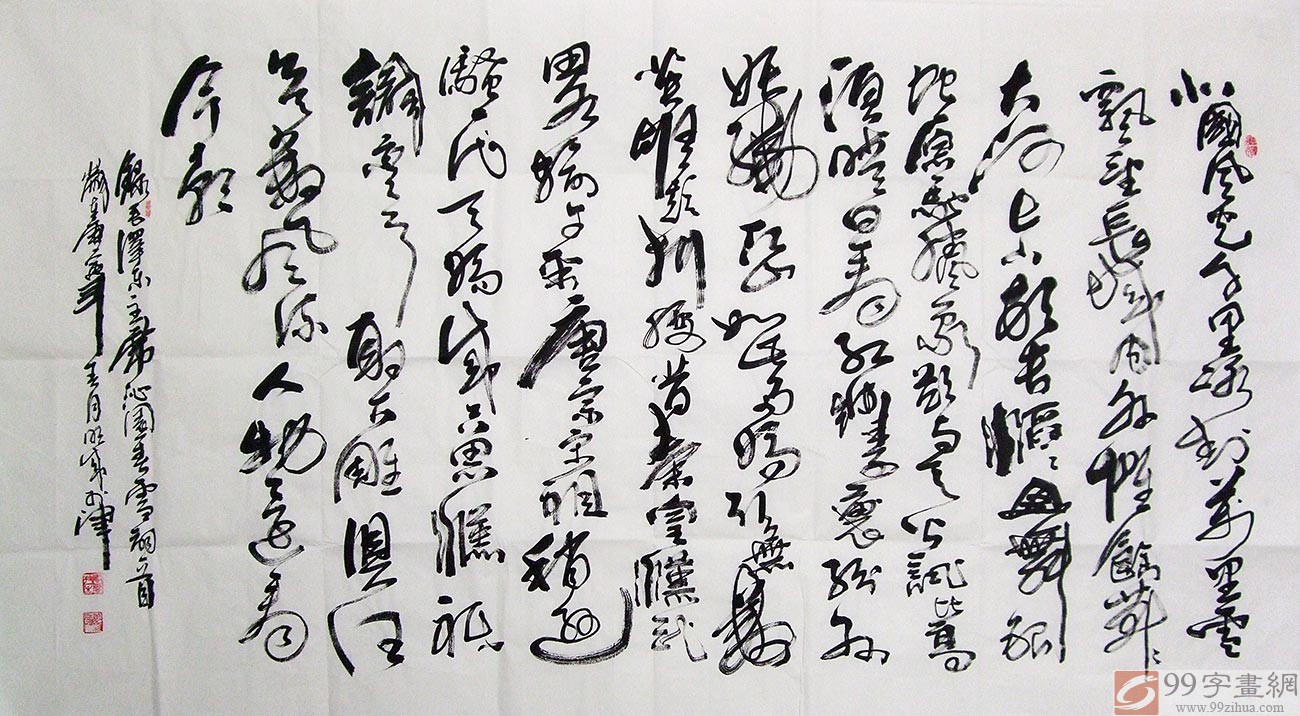 北國風光千里冰封萬里雪
飄望長城內外惟餘莽〻
大河上下頓失滔〻山舞銀
蛇原馳蠟象欲與天公試比高
須晴日看紅妝素裹紛外
妖嬈江山如此多嬌引無數
英雄競折腰昔秦皇漢武
略輸文采唐宗宋祖稍遜
騷一代天驕成吉思漢祇
識彎弓射大雕俱往
矣數風流人物還看
今朝
錄毛澤東主席沁園春雪詞一首
歲在庚寅年五月於津
99字畫網
www.99zihua.com